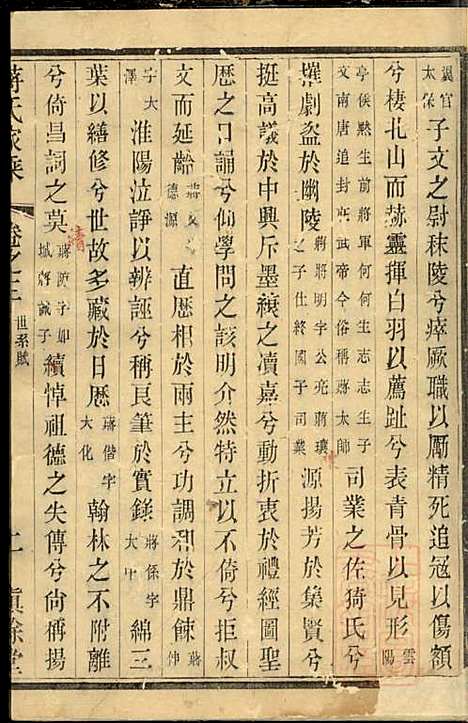 冀官太保子文之尉秣陵兮瘁厥職以勵精死追冦以傷額
兮棲北山而赫靈揮白羽以薦趾兮表青骨以見形雲陽
亭侯黙生前將軍何何生志志生子文南唐追封莊武帝今俗稱蔣太師司業之佐猗氏兮
摧劇盗於幽陵蔣將明字公亮蔣瓌之子仕終國子司業源揚芳於集賢兮
挺高議於中興斥墨縗之凟嘉兮動折衷於禮經圖聖
歷之日誦兮仙學問之該明介然特立以不倚兮拒叔
文而延齡蔣乂德源直歷相於兩主兮功調和於鼎餗蔣伸
子大澤淮陽泣諍以辨誣兮稱良筆於實錄蔣係字大中綿三
葉以繕修兮世故多藏於日歷蔣偕字大化翰林之不附離
兮倚昌詞之莫蔣防子如城蔣誠子續悼祖德之失傳兮尙稱揚
蔣氏家乘
卷之三 世系賦
二 慎餘堂